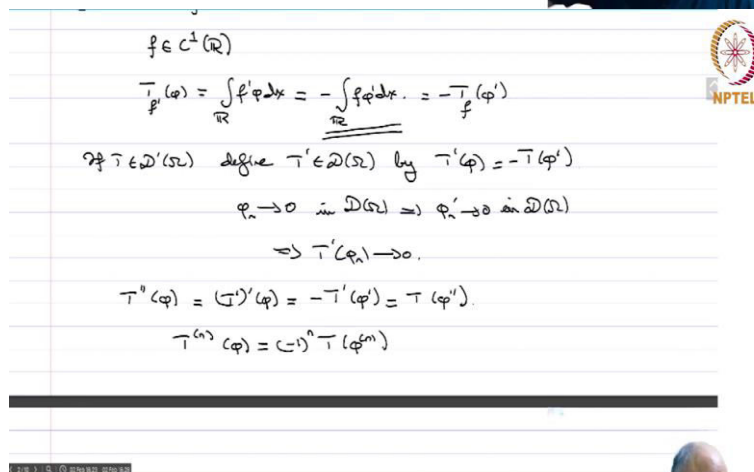 f ∈ C¹(ℝ)
T_{f'}(φ) = ∫_ℝ f'φ dx = - ∫_ℝ fφ' dx. = - T_f(φ')
If T ∈ D'(Ω) define T' ∈ D(Ω) by T'(φ) = -T(φ')
φ_n → 0 in D(Ω) => φ_n' → 0 in D(Ω)
=> T'(φ_n) → 0.
T''(φ) = (T')'(φ) = -T'(φ') = T(φ'').
T^{(n)}(φ) = (-1)^n T(φ^{(n)})
NPTEL